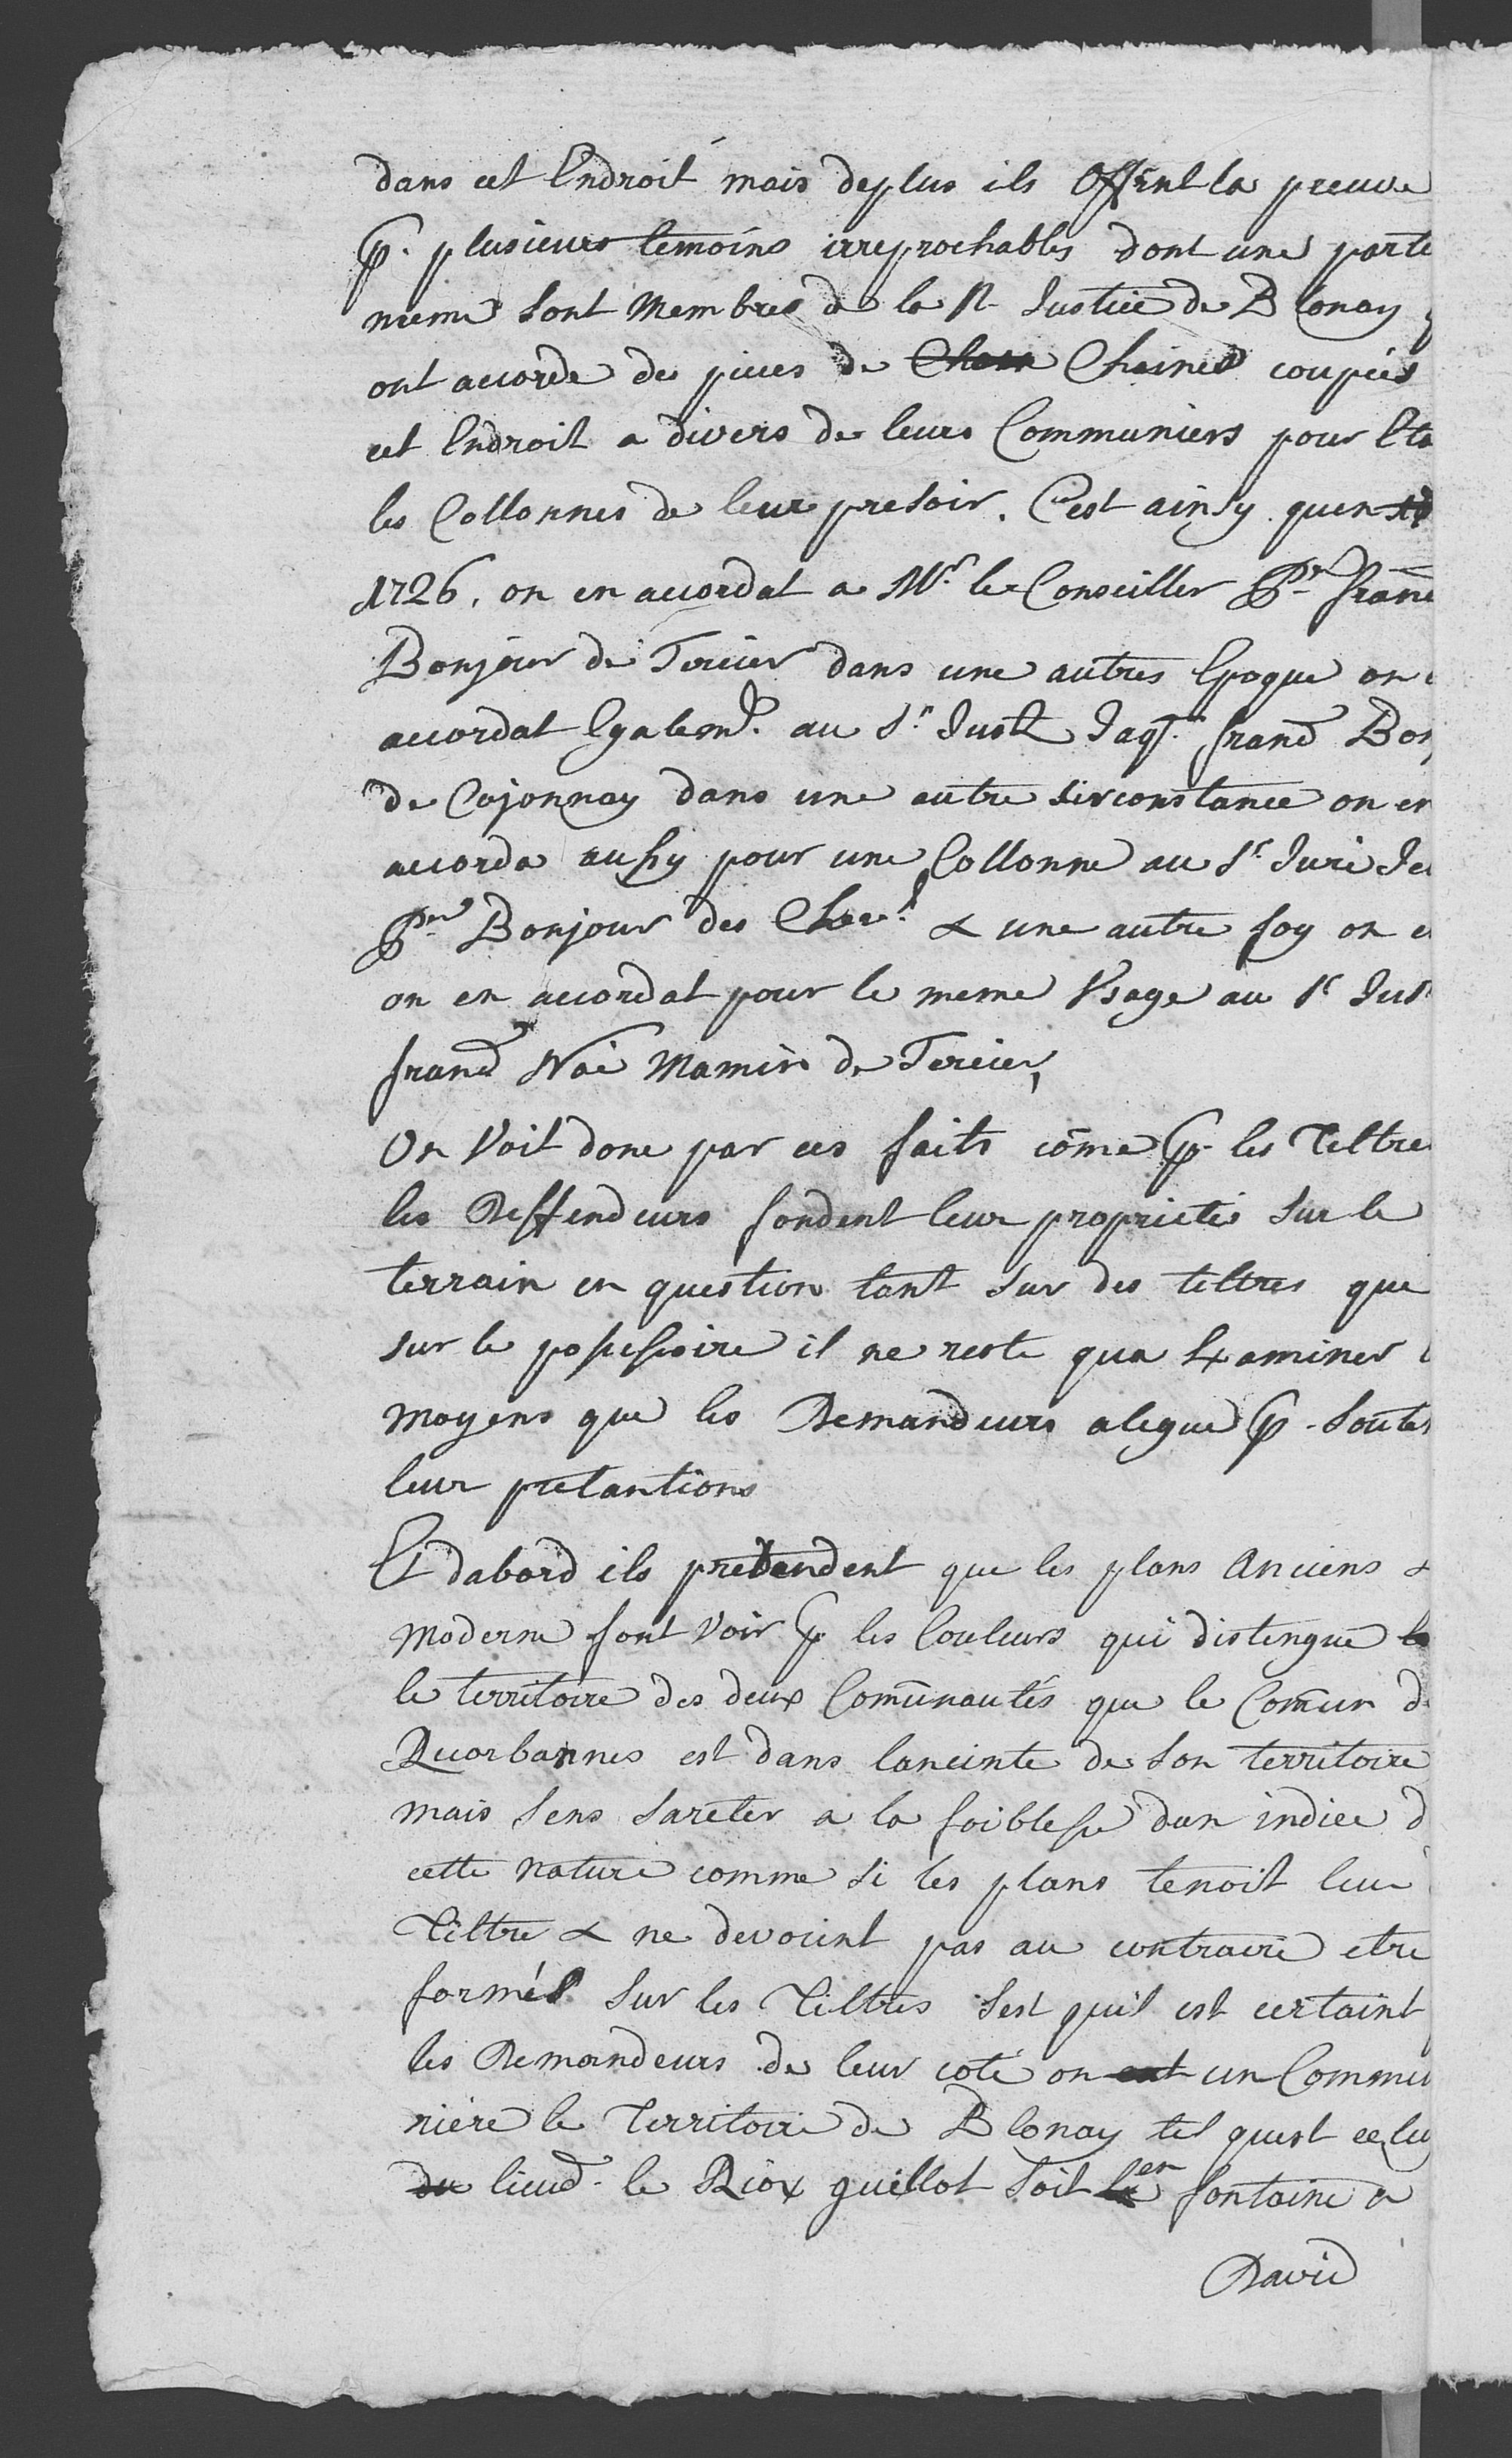 dans cet Endroit mais deplus ils Offrent la preuve
p. plusieurs temoins irreprochables dont une parte
meme sont Membres de la N. Justice de Blonay
ont accorde des pieces de Chaines coupées
cet Endroit a divers de leurs Communiers pour
les Collonnes de leur presoir. C'est ainsy quen
1726. on en accordat a Mr. le Conseiller Pre franc
Bonjour de Tercier dans une autres Epoque on
accordat Egalemt. au Sr. Just Jaq. francs Bon
de Cojonnay dans une autre sirconstance on en
accorda aussy pour une Collonne au Sr. Juré
Pre Bonjour des Chev. & une autre foy on
on en accordat pour le meme Usage au Sr Just
francs Noé Mamin de Tercier,
On Voit donc par ces faits côme p. les Tiltre
les Deffendeurs fondent leur proprieté sur le
terrain en question tant sur des tiltres que
sur le possessoire il ne reste qua Examiner
moyens que les Demandeurs alegue p. Soute
leur pretantions
Et dabord ils pretendent que les plans Anciens &
Moderne font Voir p. les Couleurs qui distengue
le territoire des deux Comūnautés que le Comūn d
Quorbannes est dans lanceinte de Son territoire
mais sens sareter a la foiblesse dun indice d
cette nature comme si les plans tenoit lieu
Tiltre & ne devoient pas au contraire etre
formés sur les Tiltres sest quil est certaint
les Demandeurs de leur coté on un Commu
niere le Territoire de Blonay tel quest celu
lieud. le Riox guillot soit en fontaine a
David